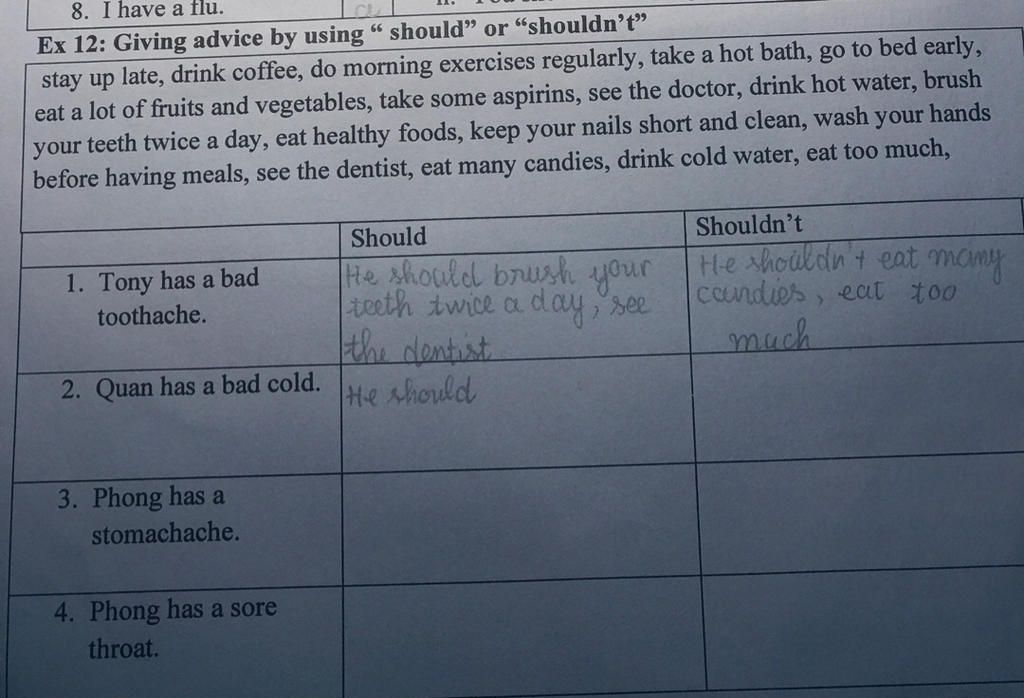 8. I have a flu.
Ex 12: Giving advice by using “ should” or “shouldn’t”
stay up late, drink coffee, do morning exercises regularly, take a hot bath, go to bed early,
eat a lot of fruits and vegetables, take some aspirins, see the doctor, drink hot water, brush
your teeth twice a day, eat healthy foods, keep your nails short and clean, wash your hands
before having meals, see the dentist, eat many candies, drink cold water, eat too much,
Should
Shouldn’t
1. Tony has a bad
toothache.
He should brush your
teeth twice a day, see
the dentist
He shouldn't eat many
candies, eat too
much
2. Quan has a bad cold.
He should
3. Phong has a
stomachache.
4. Phong has a sore
throat.